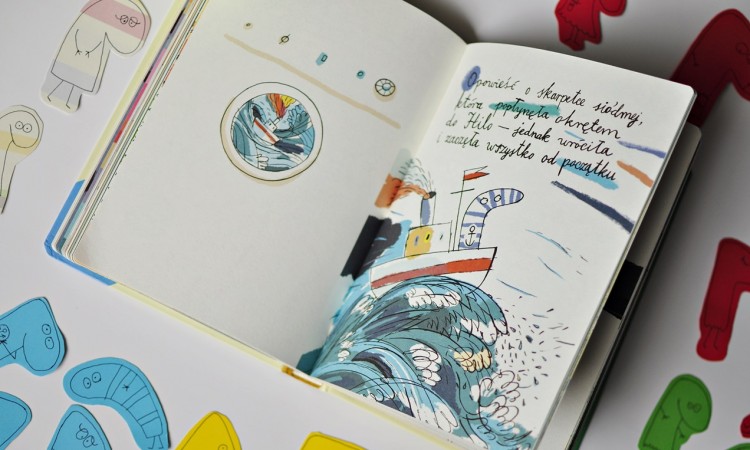 Opowieść o skarpetce siódmej,
która popłynęła okrętem
do Hilo – jednak wróciła
i zaczęła wszystko od początku